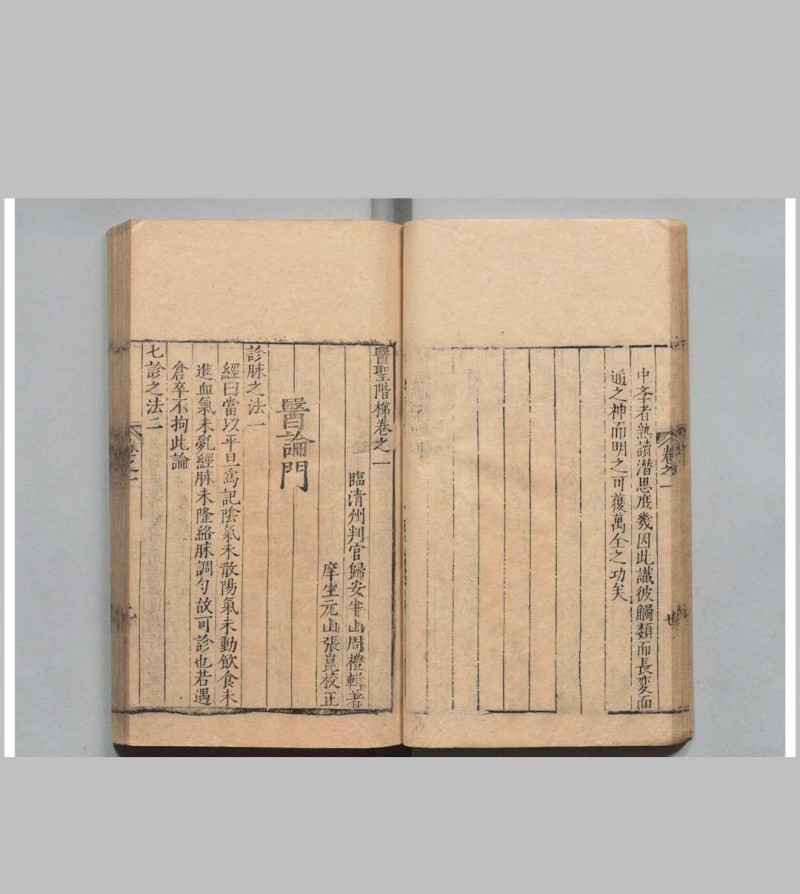 中李者熟讀潜思庶幾因此識彼觸類而長変而
通之神而明之可獲萬全之功矣
卷之一
醫聖階梯卷之一
臨清州判官歸安半山周禮輯著
庠生元山張崑校正
醫論門
診脉之法一
經曰當以平旦爲記陰氣未散陽氣未動飲食未
進血氣未亂經脉未隆絡脉調匀故可診也若遇
倉卒不拘此論
七診之法二
卷之一